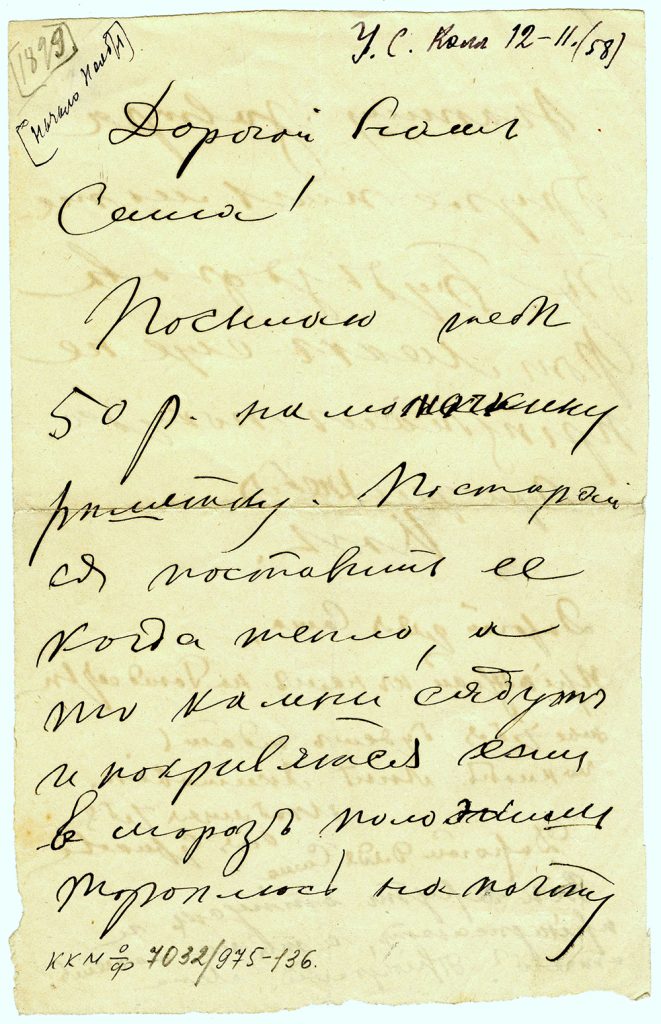 1899.
[Начало Нояб.]
У. С. Колл 12-11.(58)
Дорогой братъ
Саша!
Посылаю тебѣ
50 р. на мамочкину
рѣшетку. Постарай
ся поставить ее
когда тепло, а
то камни сядутъ
и покривятся если
в морозъ положишь
тороплюсь на почту
ККМ оф 7032/975-136.